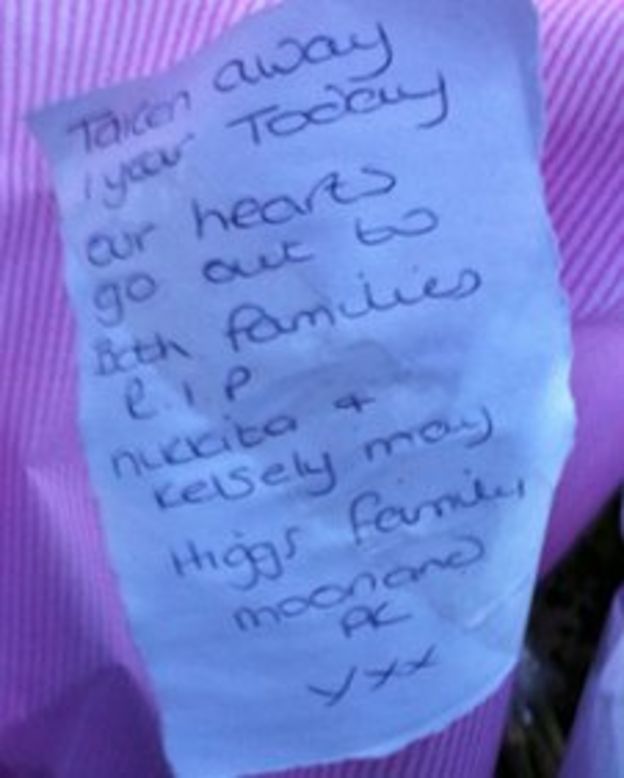 Taken away
1 year Today
our hearts
go out to
Both families
R.I.P
nikkita +
Kelsely may
Higgs family
moorland
PK
xxx